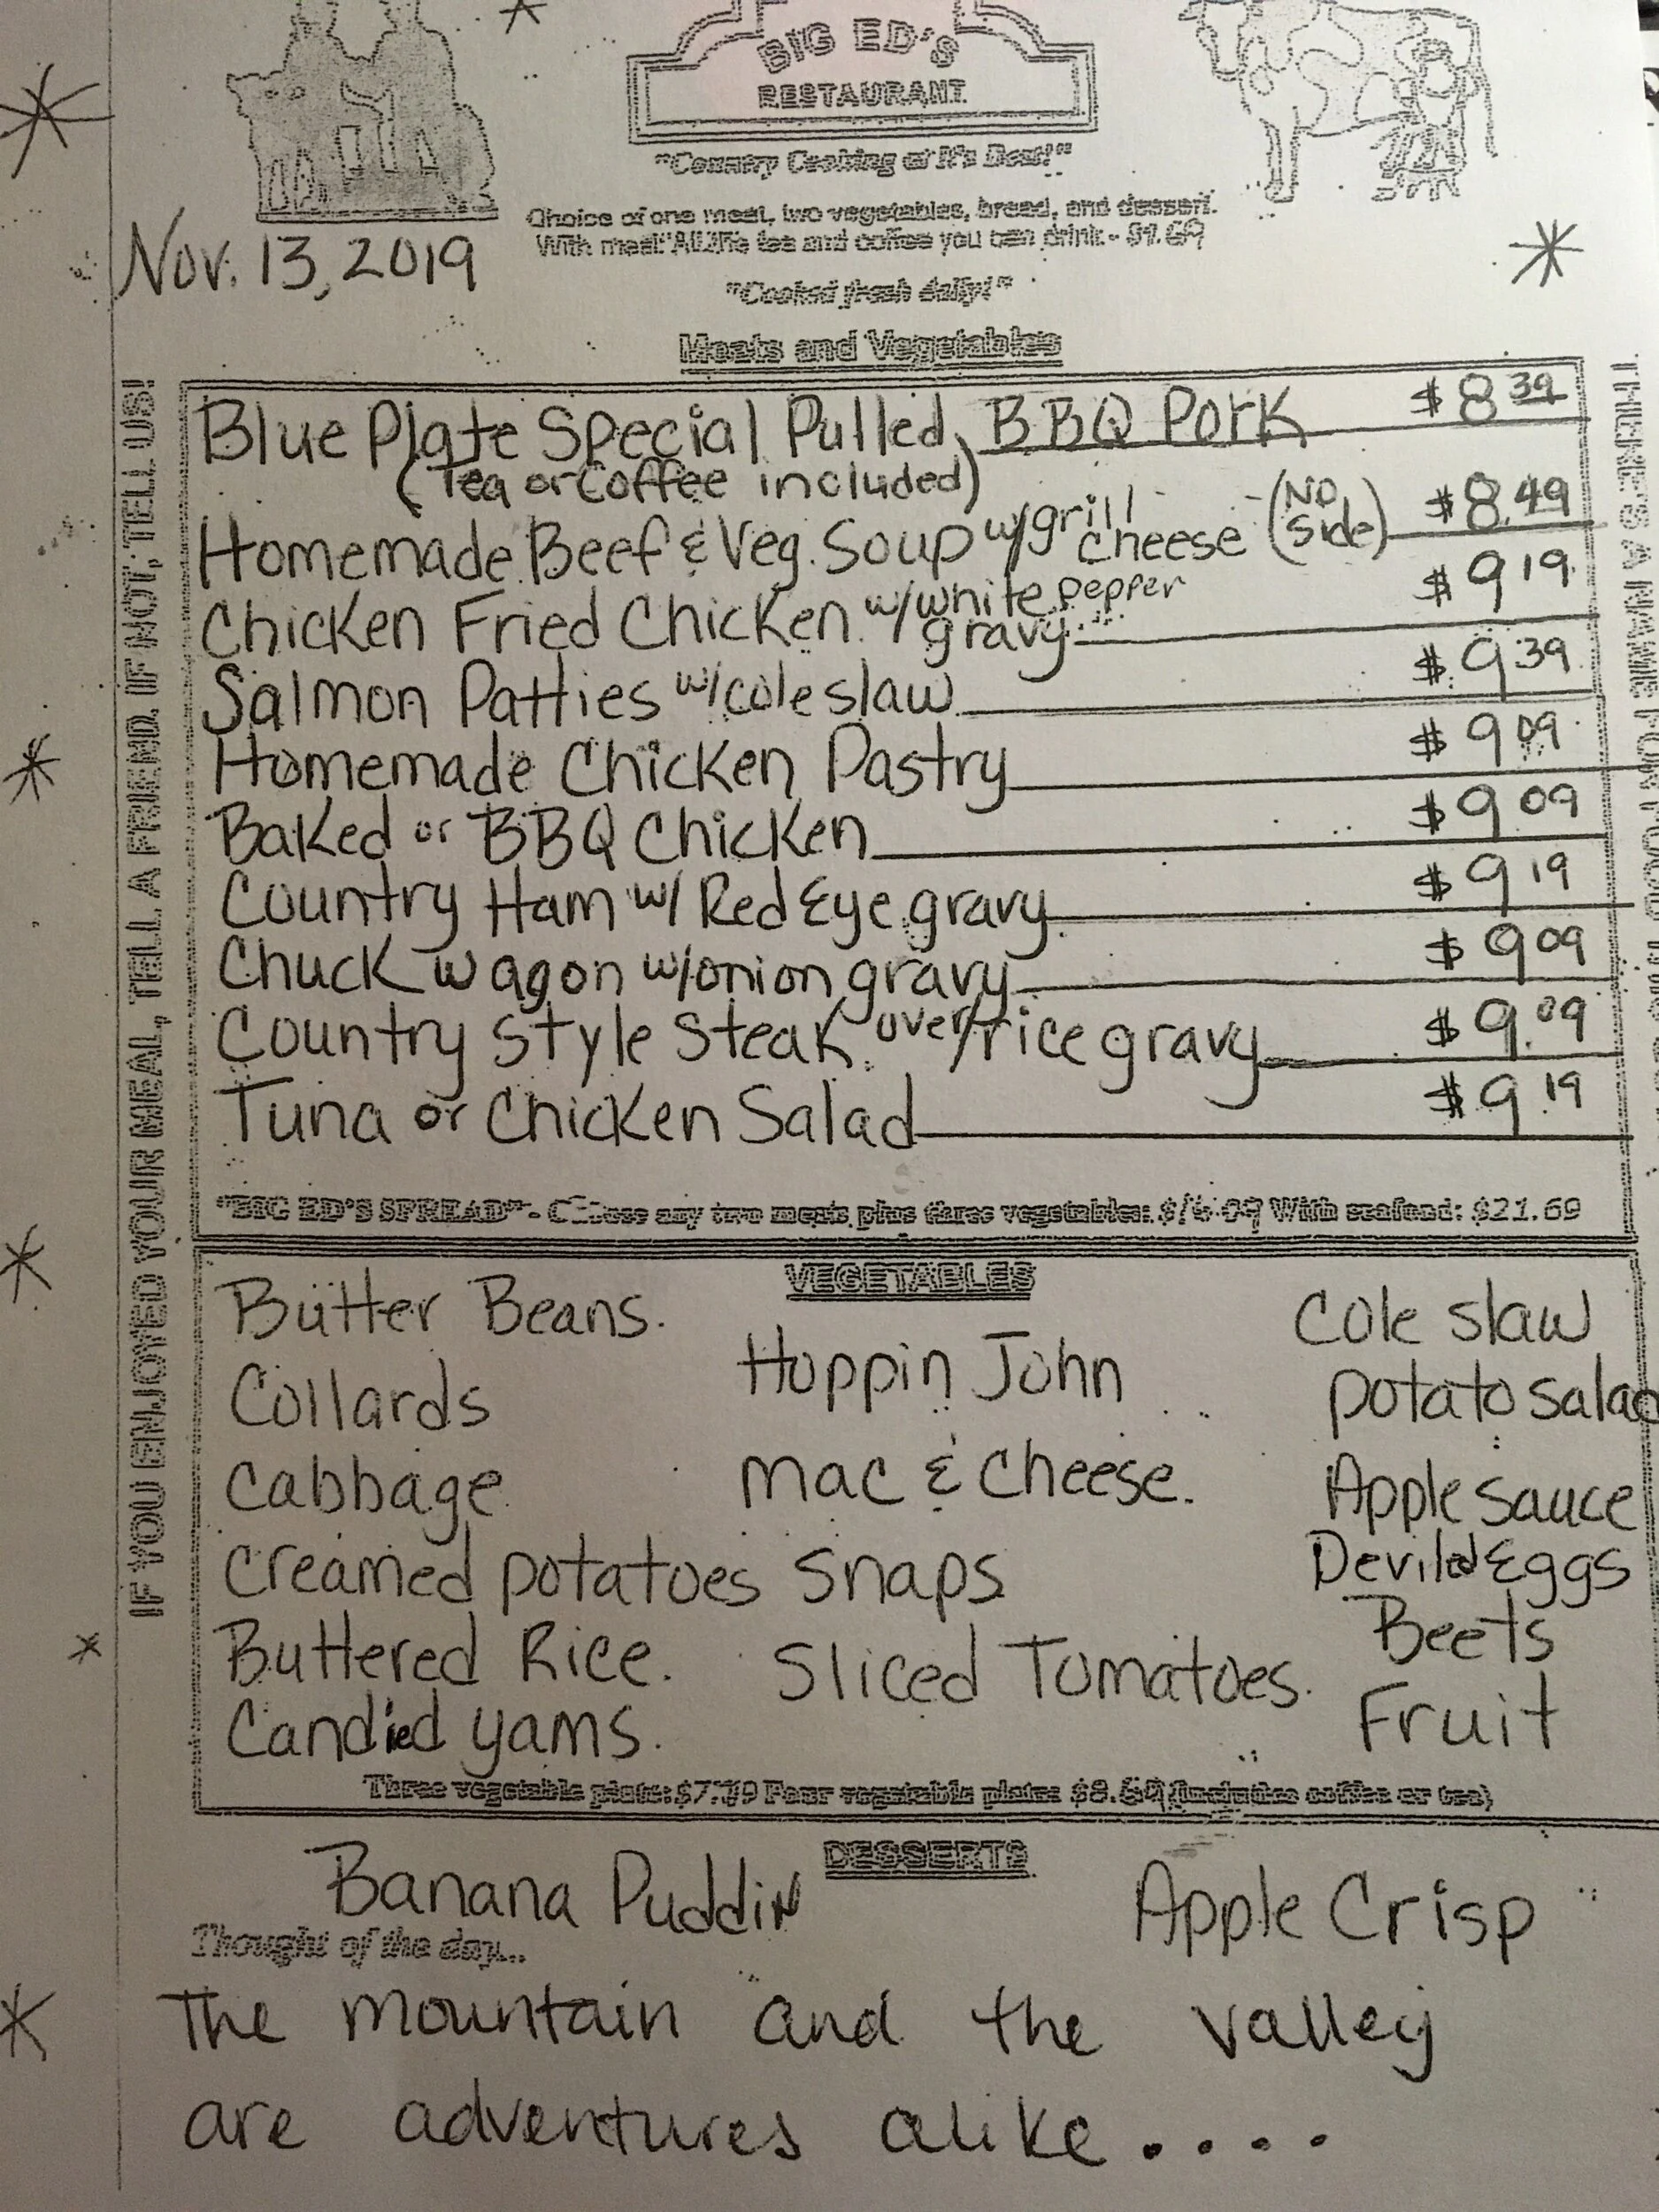 BIG ED'S
RESTAURANT
"Country Cooking at It's Best!"
Choice of one meat, two vegetables, bread, and dessert.
With meat "All the tea and coffee you can drink -
Nov. 13, 2019
"Cooked fresh daily!"
Meats and Vegetables
Blue Plate Special Pulled BBQ Pork $8 39
(Tea or Coffee included)
Homemade Beef & Veg. Soup w/grill cheese (No Side) $8.49
Chicken Fried Chicken w/white pepper gravy $9 19
Salmon Patties w/coleslaw $9 39
Homemade Chicken Pastry $9 09
Baked or BBQ Chicken $9 09
Country Ham w/ Red Eye gravy $9 19
Chuck wagon w/onion gravy $9 09
Country Style Steak over/rice gravy $9.09
Tuna or Chicken Salad $9.19
"BIG ED'S SPREAD" - Choose any two meats plus three vegetables: With seafood: $21.69
VEGETABLES
Butter Beans.
Collards
Cabbage
Creamed potatoes
Buttered Rice.
Candied yams.
Hoppin John
Mac & Cheese.
Snaps
Sliced Tomatoes.
Cole slaw
Potato Salad
Apple Sauce
Deviled Eggs
Beets
Fruit
Three vegetable plate: Four vegetable plate: (includes coffee or tea)
DESSERTS
Banana Puddin Apple Crisp
Thought of the day...
The mountain and the valley
are adventures alike....
IF YOU ENJOYED YOUR MEAL, TELL A FRIEND. IF NOT, TELL US!
THERE'S A NAME FOR FOOD